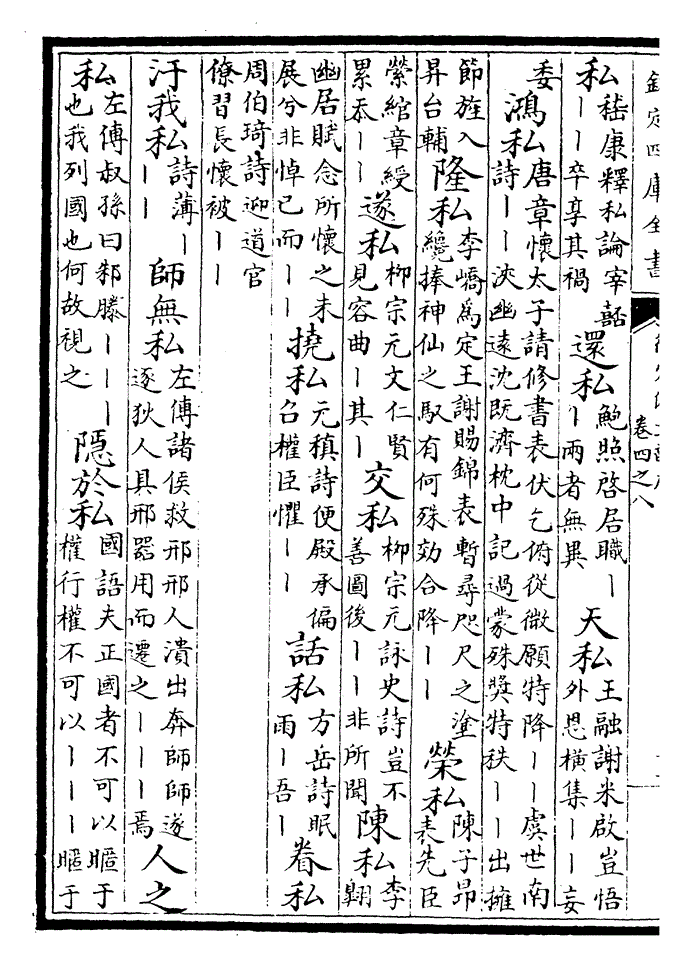 欽定四庫全書
卷四之八
私 嵇康釋私論宰嚭｜｜卒享其禍 還私 鮑照啓居職｜｜兩者無異 天私 王融謝米啟豈悟外恩橫集｜｜妄
委 鴻私 唐章懷太子請修書表伏乞俯從微願特降｜｜虞世南詩｜｜浹幽遠沈既濟枕中記過蒙殊奬特秩｜｜出擁
節旄入昇台輔 隆私 李嶠爲定王謝賜錦表暫尋咫尺之塗纔捧神仙之馭有何殊効合降｜｜ 榮私 陳子昂表先臣
縈綰章綬累忝｜｜ 遂私 柳宗元文仁賢見容曲｜其｜ 交私 柳宗元詠史詩豈不善圖後｜｜非所聞 陳私 李翺
幽居賦念所懷之未展兮非悼已而｜｜ 撓私 元稹詩便殿承偏召權臣懼｜｜ 話私 方岳詩眠雨｜吾｜ 眷私
周伯琦詩迎道官僚習長懷被｜｜
汙我私 詩薄｜｜｜ 師無私 左傳諸侯救邢邢人潰出奔師師遂逐狄人具邢器用而遷之｜｜｜焉 人之
私 左傳叔孫曰邾滕｜｜｜也我列國也何故視之 隱於私 國語夫正國者不可以暱于權行權不可以｜｜｜暱于